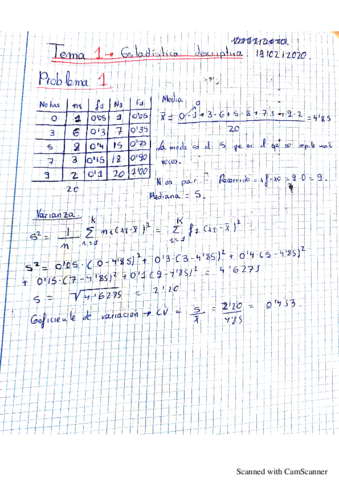 19/02/2020
Tema 1 → Estadística descriptiva
Problema 1
Notas ni fi Ni Fi
0 1 0'05 1 0'05
3 6 0'3 7 0'35
5 8 0'4 15 0'75
7 3 0'15 18 0'90
9 2 0'1 20 1'00
20
Media
x̄ = 0·1+3·6+5·8+7·3+9·2 / 20 = 4'85
La moda es el 5, ya que es el que se repite más
veces.
N es par Recorrido = xf-x0 = 9-0 = 9.
Mediana = 5.
Varianza
s² = 1/n Σ ni (xi-x̄)² = Σ fi (xi-x̄)²
s² = 0'05·(0-4'85)² + 0'3·(3-4'85)² + 0'4(5-4'85)²
+ 0'15·(7-4'85)² + 0'1(9-4'85)² = 4'6275
s = √4'6275 = 2'20
Coeficiente de variación → CV = s/x̄ = 2'20/4'85 = 0'453
Scanned with CamScanner